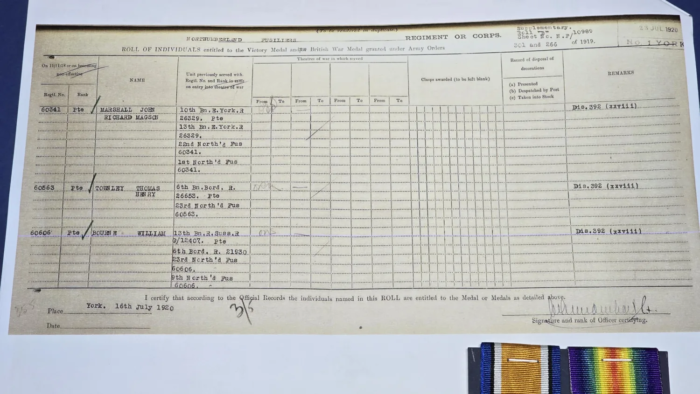 NORTHUMBERLAND FUSILIERS REGIMENT OR CORPS.
Supplementary.
ROLL OF INDIVIDUALS entitled to the Victory Medal and/or British War Medal granted under Army Orders 301 and 266 of 1919.
Regtl. No. Rank
NAME
Unit previously served with
Theatres of war in which served
From To From To From To From To
Clasps awarded (to be left blank)
Record of disposal of decorations
(a) Presented
(b) Despatched by Post
(c) Taken into Stock
REMARKS
60541 Pte MARSHALL JOHN 10th Bn.E.York.R Dis.392 (xxviii)
RICHARD MAGSON 26229. Pte
13th Bn.E.York.R
26229.
22nd North'd Fus
60541.
1st North'd Fus
60541.
60563 Pte TOWNLEY THOMAS 6th Bn.Bord. R. Dis.392 (xxviii)
HENRY 26652. Pte
23rd North'd Fus
60563.
60606 Pte BOURNE WILLIAM 13th Bn.R.Suss.R Dis.392 (xxviii)
G/12407. Pte
6th Bord. R. 21930
23rd North'd Fus
60606.
9th North'd Fus
60606.
I certify that according to the Official Records the individuals named in this ROLL are entitled to the Medal or Medals as detailed above.
Place York. 16th July 1920
Signature and rank of Officer certifying.
Date